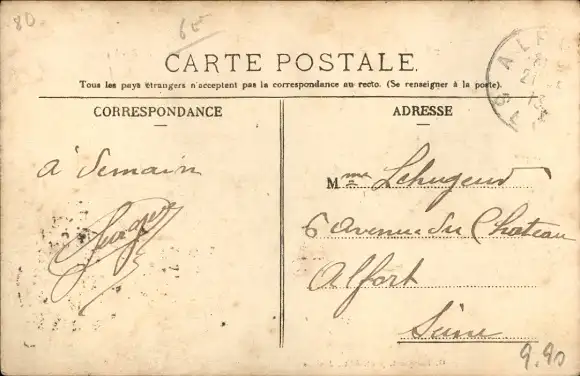 80
6
CARTE POSTALE.
Tous les pays étrangers n'acceptent pas la correspondance au recto. (Se renseigner à la poste).
CORRESPONDANCE
à demain
ADRESSE
Mme
6 avenue du Chateau
Alfort
Seine
9.90